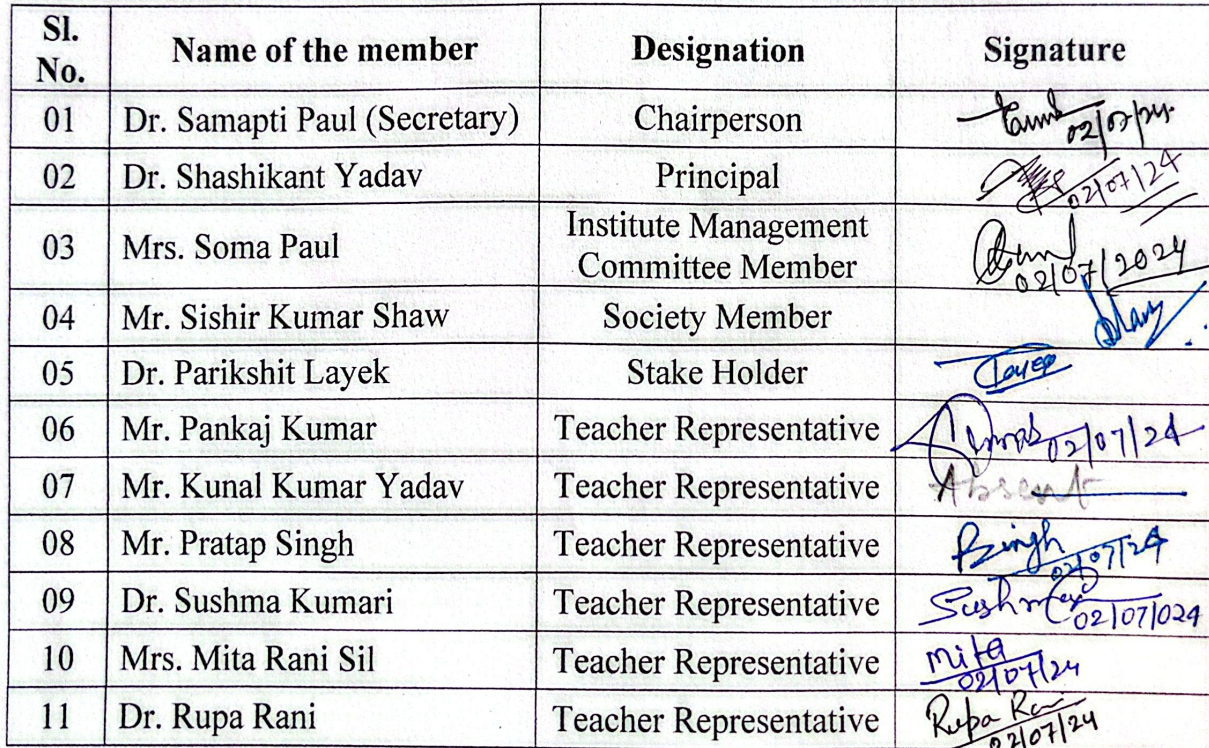 Sl. No. Name of the member Designation Signature
01 Dr. Samapti Paul (Secretary) Chairperson 02/07/24
02 Dr. Shashikant Yadav Principal 02/07/24
03 Mrs. Soma Paul Institute Management Committee Member 02/07/2024
04 Mr. Sishir Kumar Shaw Society Member
05 Dr. Parikshit Layek Stake Holder
06 Mr. Pankaj Kumar Teacher Representative 02/07/24
07 Mr. Kunal Kumar Yadav Teacher Representative Absent
08 Mr. Pratap Singh Teacher Representative 02/07/24
09 Dr. Sushma Kumari Teacher Representative Sushma 02/07/024
10 Mrs. Mita Rani Sil Teacher Representative Mita 02/07/24
11 Dr. Rupa Rani Teacher Representative Rupa Rani 02/07/24